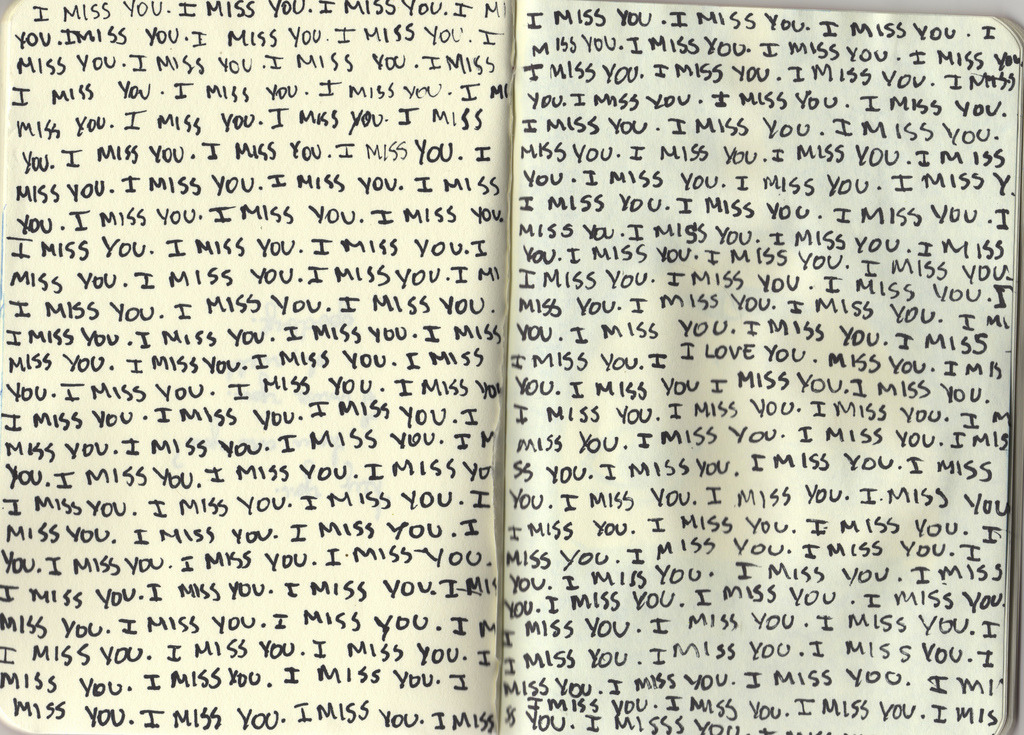 I MISS YOU. I MISS YOU. I MISS YOU. I MI
YOU. I MISS YOU. I MISS YOU. I MISS YOU. I
MISS YOU. I MISS YOU. I MISS YOU. I MISS
I MISS YOU. I MISS YOU. I MISS YOU. I MI
MISS YOU. I MISS YOU. I MISS YOU. I MISS
YOU. I MISS YOU. I MISS YOU. I MISS YOU. I
MISS YOU. I MISS YOU. I MISS YOU. I MISS
YOU. I MISS YOU. I MISS YOU. I MISS YOU.
I MISS YOU. I MISS YOU. I MISS YOU. I
MISS YOU. I MISS YOU. I MISS YOU. I MI
I MISS YOU. I MISS YOU. I MISS YOU.
I MISS YOU. I MISS YOU. I MISS YOU. I MISS
MISS YOU. I MISS YOU. I MISS YOU. I MISS
YOU. I MISS YOU. I MISS YOU. I MISS YOU
I MISS YOU. I MISS YOU. I MISS YOU. I
MISS YOU. I MISS YOU. I MISS YOU. I M
YOU. I MISS YOU. I MISS YOU. I MISS YO
I MISS YOU. I MISS YOU. I MISS YOU. I
MISS YOU. I MISS YOU. I MISS YOU. I
YOU. I MISS YOU. I MISS YOU. I MISS YOU.
I MISS YOU. I MISS YOU. I MISS YOU. I MIS
MISS YOU. I MISS YOU. I MISS YOU. I M
I MISS YOU. I MISS YOU. I MISS YOU. I
MISS YOU. I MISS YOU. I MISS YOU. I
MISS YOU. I MISS YOU. I MISS YOU. I MISS
I MISS YOU. I MISS YOU. I MISS YOU. I
MISS YOU. I MISS YOU. I MISS YOU. I MISS YOU
I MISS YOU. I MISS YOU. I MISS YOU. I MISS
YOU. I MISS YOU. I MISS YOU. I MISS YOU.
I MISS YOU. I MISS YOU. I MISS YOU.
MISS YOU. I MISS YOU. I MISS YOU. I MISS
YOU. I MISS YOU. I MISS YOU. I MISS Y.
I MISS YOU. I MISS YOU. I MISS YOU. I
MISS YOU. I MISS YOU. I MISS YOU. I MISS
YOU. I MISS YOU. I MISS YOU. I MISS YOU.
I MISS YOU. I MISS YOU. I MISS YOU. I
MISS YOU. I MISS YOU. I MISS YOU. I MI
YOU. I MISS YOU. I MISS YOU. I MISS
I MISS YOU. I I LOVE YOU. MISS YOU. I MIS
YOU. I MISS YOU I MISS YOU. I MISS YOU.
I MISS YOU. I MISS YOU. I MISS YOU. I M
MISS YOU. I MISS YOU. I MISS YOU. I MIS
SS YOU. I MISS YOU. I MISS YOU. I MISS
YOU. I MISS YOU. I MISS YOU. I MISS YOU
I MISS YOU. I MISS YOU. I MISS YOU. I
MISS YOU. I MISS YOU. I MISS YOU. I
YOU. I MISS YOU. I MISS YOU. I MISS
YOU. I MISS YOU. I MISS YOU. I MISS YOU.
I MISS YOU. I MISS YOU. I MISS YOU. I
I MISS YOU. I MISS YOU. I MISS YOU. I
MISS YOU. I MISS YOU. I MISS YOU. I MI
I MISS YOU. I MISS YOU. I MISS YOU. I MIS
SS YOU. I MISSS YOU. I MISS YOU. I M